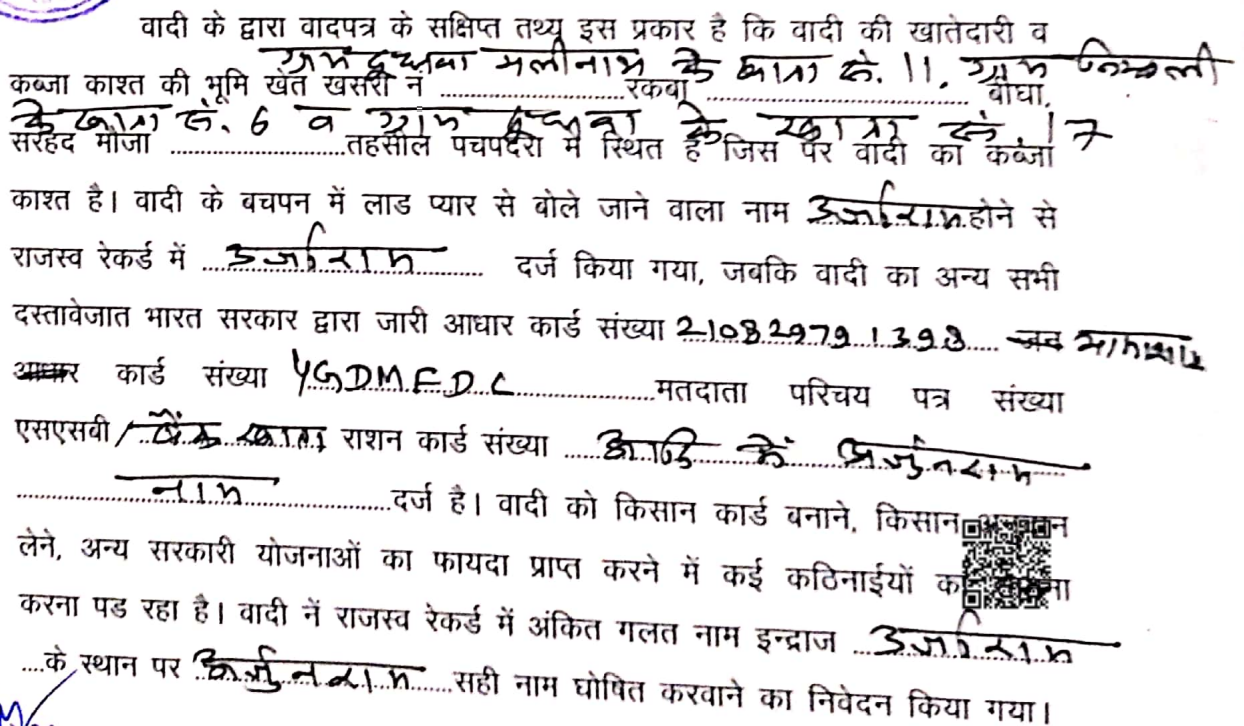 वादी के द्वारा वादपत्र के सक्षिप्त तथ्य इस प्रकार है कि वादी की खातेदारी व
ग्राम दूधवा मलीनाथ के खाता सं. 11, ग्राम
कब्जा काश्त की भूमि खेत खसरा नं ....................रकबा .............................. बीघा,
के खाता सं. 6 व ग्राम दूधवा के खाता सं 17
सरहद मौजा ....................तहसील पचपदरा में स्थित है जिस पर वादी का कब्जा
काश्त है। वादी के बचपन में लाड प्यार से बोले जाने वाला नाम उर्जाराम होने से
राजस्व रेकर्ड में ...उर्जाराम........ दर्ज किया गया, जबकि वादी का अन्य सभी
दस्तावेजात भारत सरकार द्वारा जारी आधार कार्ड संख्या 210829791398.....
कार्ड संख्या YGDMFDC..................मतदाता परिचय पत्र संख्या
एसएसबी / बैंक खाता राशन कार्ड संख्या .....आदि में अर्जुनराम
नाम ..............दर्ज है। वादी को किसान कार्ड बनाने, किसान
लेने, अन्य सरकारी योजनाओं का फायदा प्राप्त करने में कई कठिनाईयों का
करना पड रहा है। वादी नें राजस्व रेकर्ड में अंकित गलत नाम इन्द्राज ...उर्जाराम
....के स्थान पर अर्जुनराम.....सही नाम घोषित करवाने का निवेदन किया गया।